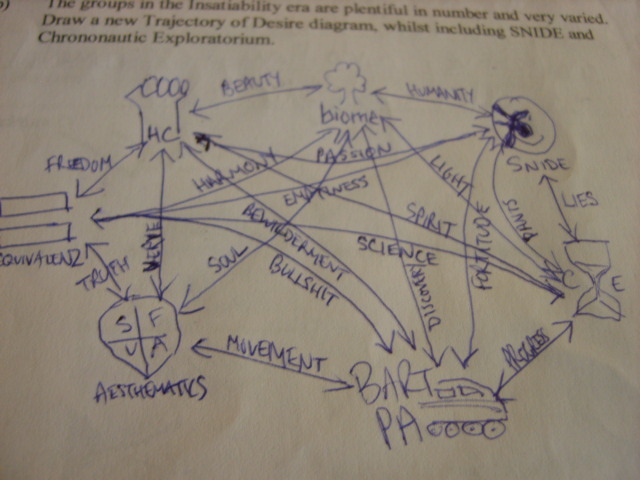 The groups in the Insatiability era are plentiful in number and very varied.
Draw a new Trajectory of Desire diagram, whilst including SNIDE and
Chrononautic Exploratorium.
BEAUTY
HUMANITY
HC
biome
SNIDE
FREEDOM
HARMONY
PASSION
LIGHT
EMPTINESS
LIES
PANTS
SPIRIT
FORTITUDE
BEWILDERMENT
SCIENCE
EQUIVALENZ
TRUTH
VERVE
SOUL
BULLSHIT
DISCOVERY
C E
S F
V A
AESTHEMATICS
MOVEMENT
PROGRESS
BART
PA